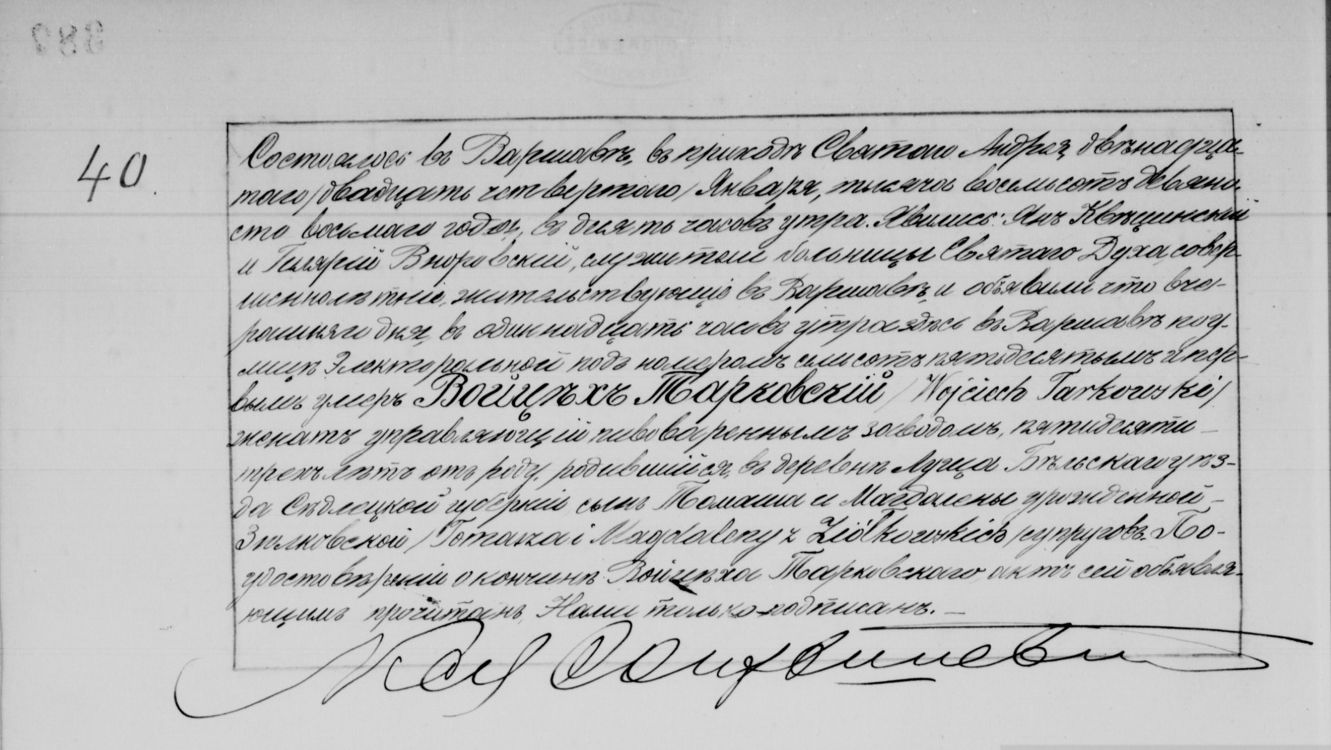 40
Состоялось въ Варшавѣ, въ приходѣ Святаго Андрея, двѣнадца-
таго /двадцать четвертаго/ Января, тысяча восемьсотъ девяно-
сто восьмаго года, въ десять часовъ утра. Явились: Янъ Квѣцинскій
и Гилярій Вноровскій, служители больницы Святаго Духа, совер-
шеннолѣтніе, жительствующіе въ Варшавѣ, и объявили что вче-
рашняго дня, въ одиннадцать часовъ утра здѣсь въ Варшавѣ по у-
лицѣ Электоральной подъ номеромъ семьсотъ пятьдесятымъ пер-
вымъ умеръ Войцѣхъ Тарковскій /Wojciech Tarkowski/
женатъ управляющій пивовареннымъ заводомъ, пятидесяти
трехъ лѣтъ отъ роду, родившійся, въ деревнѣ Луща Бѣльскаго уѣз-
да Сѣдлецкой губерніи сынъ Томаша и Магдалены урожденной
Зіолковской /Tomasza i Magdaleny z Ziółkowskich/ супруговъ. По
удостовѣреніи о кончинѣ Войцѣха Тарковскаго, актъ сей объявля-
ющимъ прочитанъ, Нами только подписанъ.